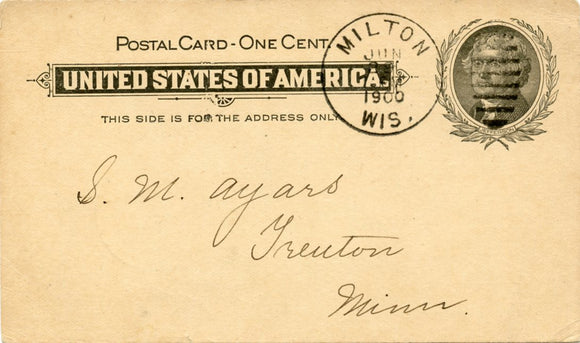 POSTAL CARD - ONE CENT.
UNITED STATES OF AMERICA.
THIS SIDE IS FOR THE ADDRESS ONLY
MILTON
JUN
1900
WIS.
S. M. Ayars
Trenton
Minn.